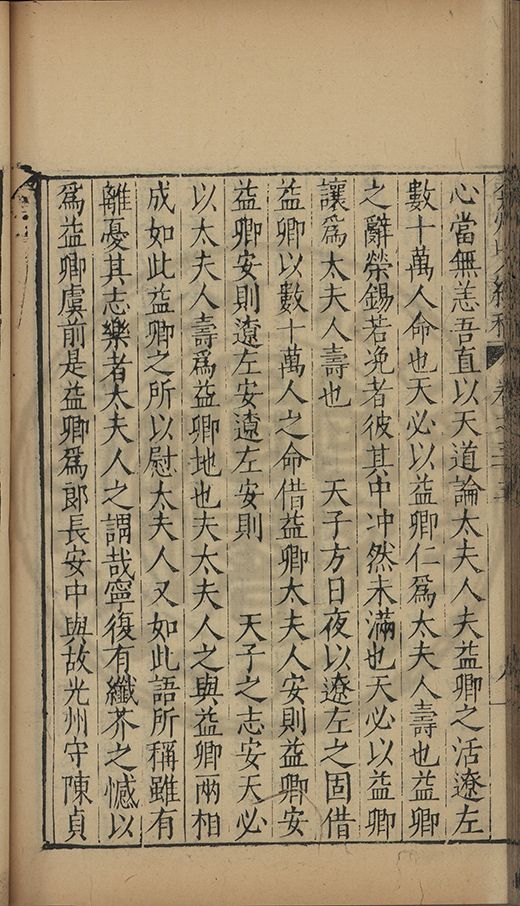 心當無恙吾直以天道論太夫人夫益卿之活遼左
數十萬人命也天必以益卿仁爲太夫人壽也益卿
之辭榮錫若浼者彼其中冲然未滿也天必以益卿
讓爲太夫人壽也　天子方日夜以遼左之固借
益卿以數十萬人之命借益卿太夫人安則益卿安
益卿安則遼左安遼左安則　天子之志安天必
以太夫人壽爲益卿地也夫太夫人之與益卿兩相
成如此益卿之所以慰太夫人又如此語所稱雖有
離憂其志樂者太夫人之謂哉寧復有纖芥之憾以
爲益卿虞前是益卿爲郎長安中與故光州守陳貞